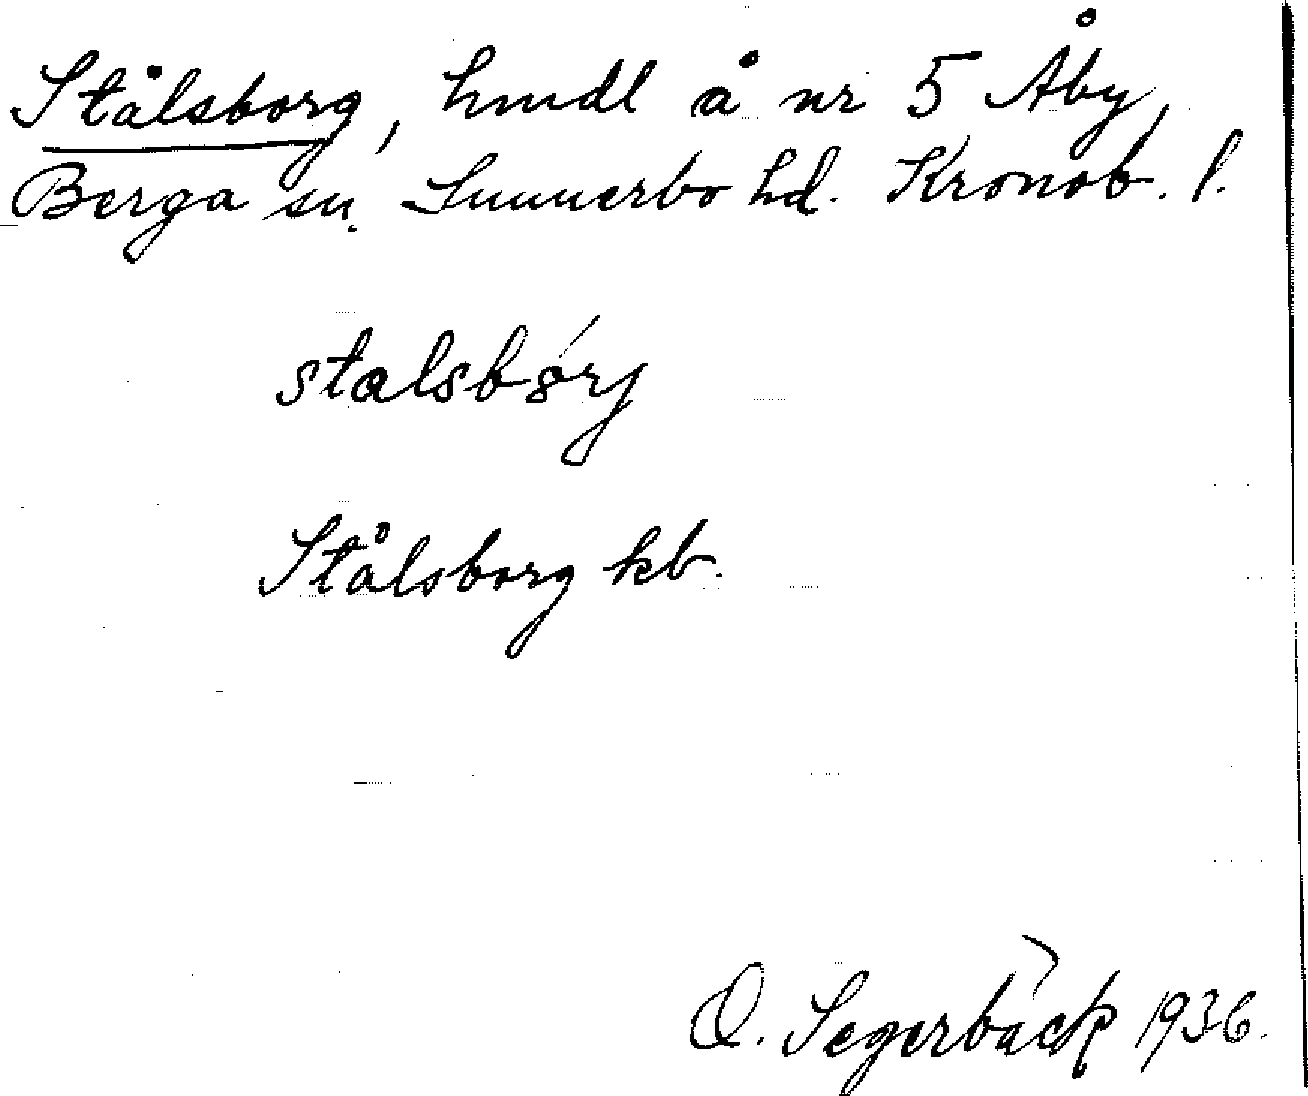 Stålsborg, hmdl å nr 5 Åby,
Berga sn. Sunnerbo hd. Kronob. l.
Stålsborg kb.
O. Segerbäck 1936.